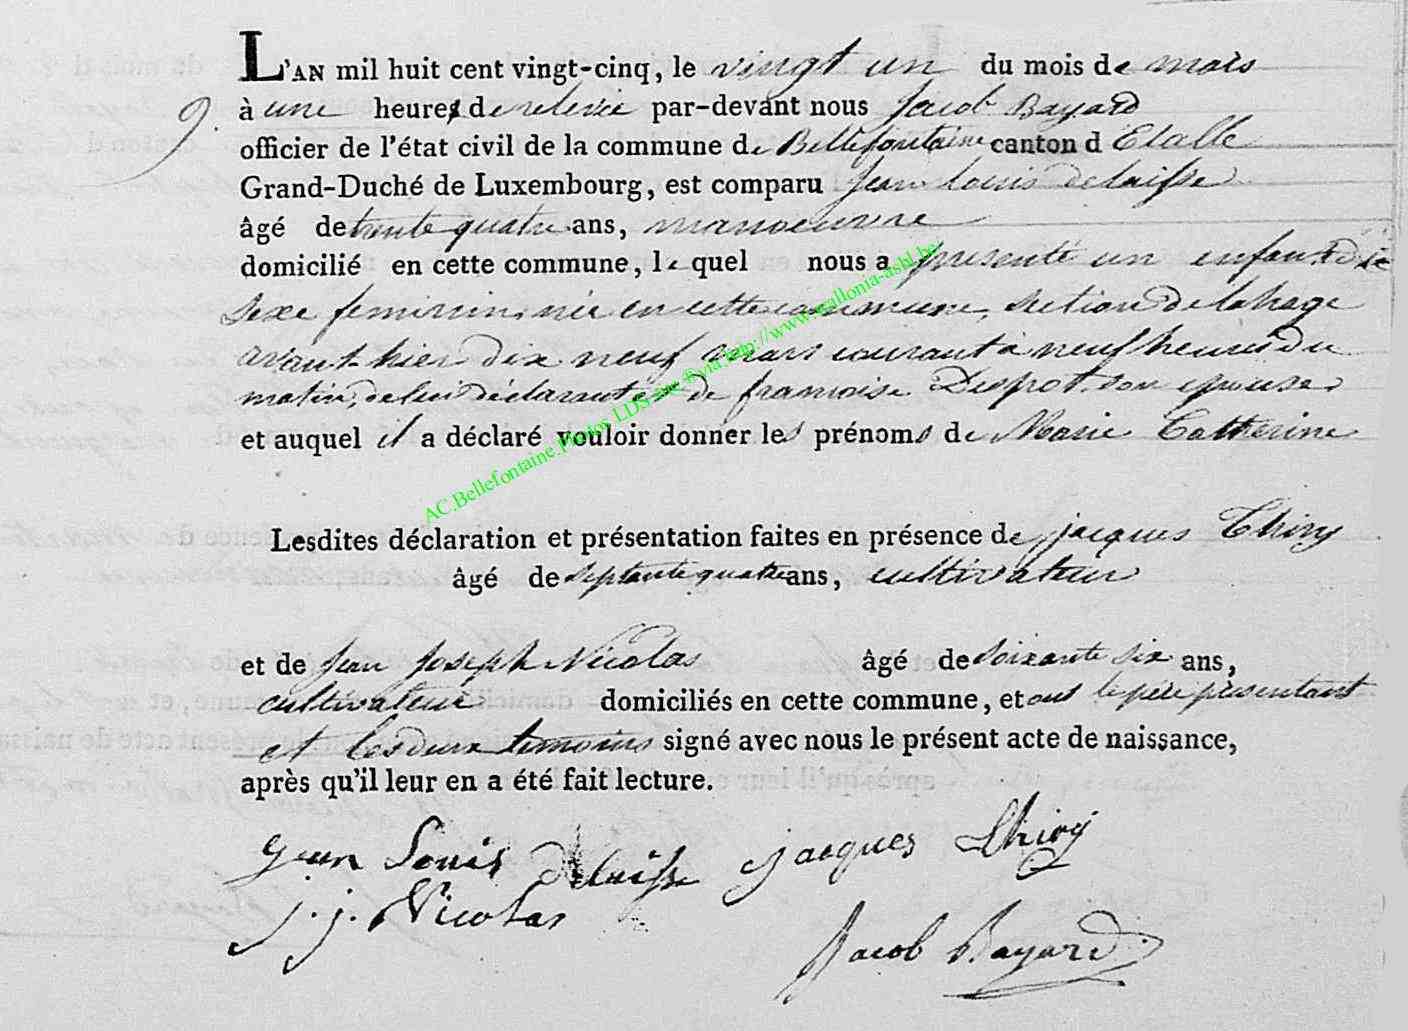 L'AN mil huit cent vingt-cinq, le vingt un du mois de mars
9. à une heure de relevée par-devant nous Jacob Bayard
officier de l'état civil de la commune de Bellefontaine canton d Etalle
Grand-Duché de Luxembourg, est comparu Jean Louis delaisse
âgé de trente quatre ans, manoeuvre
domicilié en cette commune, le quel nous a presenté un enfant de
sexe feminin, née en cette commune, section de lahage
avant hier dix neuf mars courant à neuf heures du
matin, de lui déclarant et de francoise Despot son epouse
et auquel il a déclaré vouloir donner les prénoms de Marie Catherine
AC.Bellefontaine Photos LDS via http://www.wallonia-asbl.be
Lesdites déclaration et présentation faites en présence de jacques Thiry
âgé de septante quatre ans, cultivateur
et de Jean Joseph Nicolas âgé de Soixante six ans,
cultivateur domiciliés en cette commune, et ont le père présentant
et les deux temoins signé avec nous le présent acte de naissance,
après qu'il leur en a été fait lecture.
Jean Louis Delaisse jacques Thiry
j. j. Nicolas
Jacob Bayard